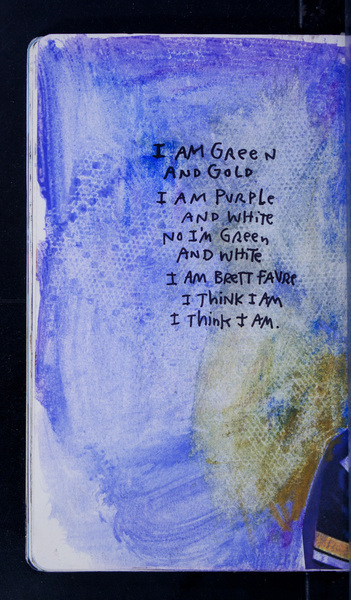 I AM GReeN
AND GOLD
I AM PURPLe
AND WHiTe
NO I'M GReen
AND WHiTe
I AM BReTT FAVRe
I THiNK I AM
I THink I AM.